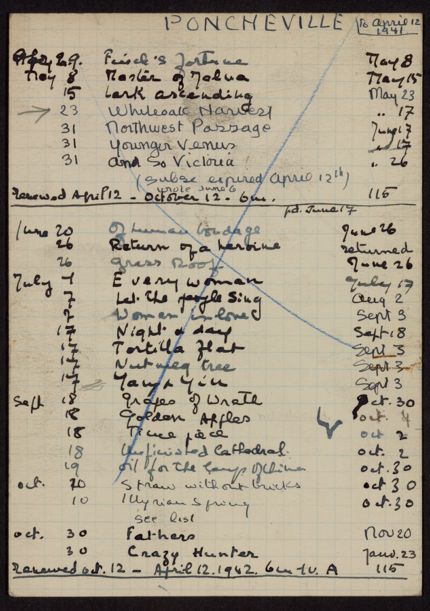 PONCHEVILLE To April 12 1941
29. Frisch's Fortune May 8
May 8 Master of Jalna May 15
15 Lark ascending May 23
→ 23 Whiteoak Harvest " 17
31 Northwest Passage June 17
31 Younger Venus 17
31 and So Victoria " 26
(Subsc expired April 12th)
wrote June 6
Renewed April 12 - October 12 - 6m. 115
pd. June 17
June 20 Of human bondage June 26
26 Return of a heroine returned
26 Grass Roof June 26
July 1 Every woman July 17
7 Let the people Sing Aug 2
7 Women in love Sept 3
17 Night & day Sept 18
17 Tortilla Flat Sept 3
17 Nutmeg tree Sept 3
17 Yang & Yin Sept 3
Sept 18 Grapes of Wrath Oct. 30
18 Golden Apples Oct. 4
18 Time piece Oct 2
18 Unfinished Cathedral Oct. 2
19 Oil for the Lamps of China Oct. 30
Oct. 20 Straw without bricks Oct 30
10 Illyrian Spring Oct. 30
See list
Oct. 30 Fathers Nov 20
30 Crazy Hunter Janv. 23
Renewed Oct. 12 - April 12. 1942. 6m - 1v. A 115